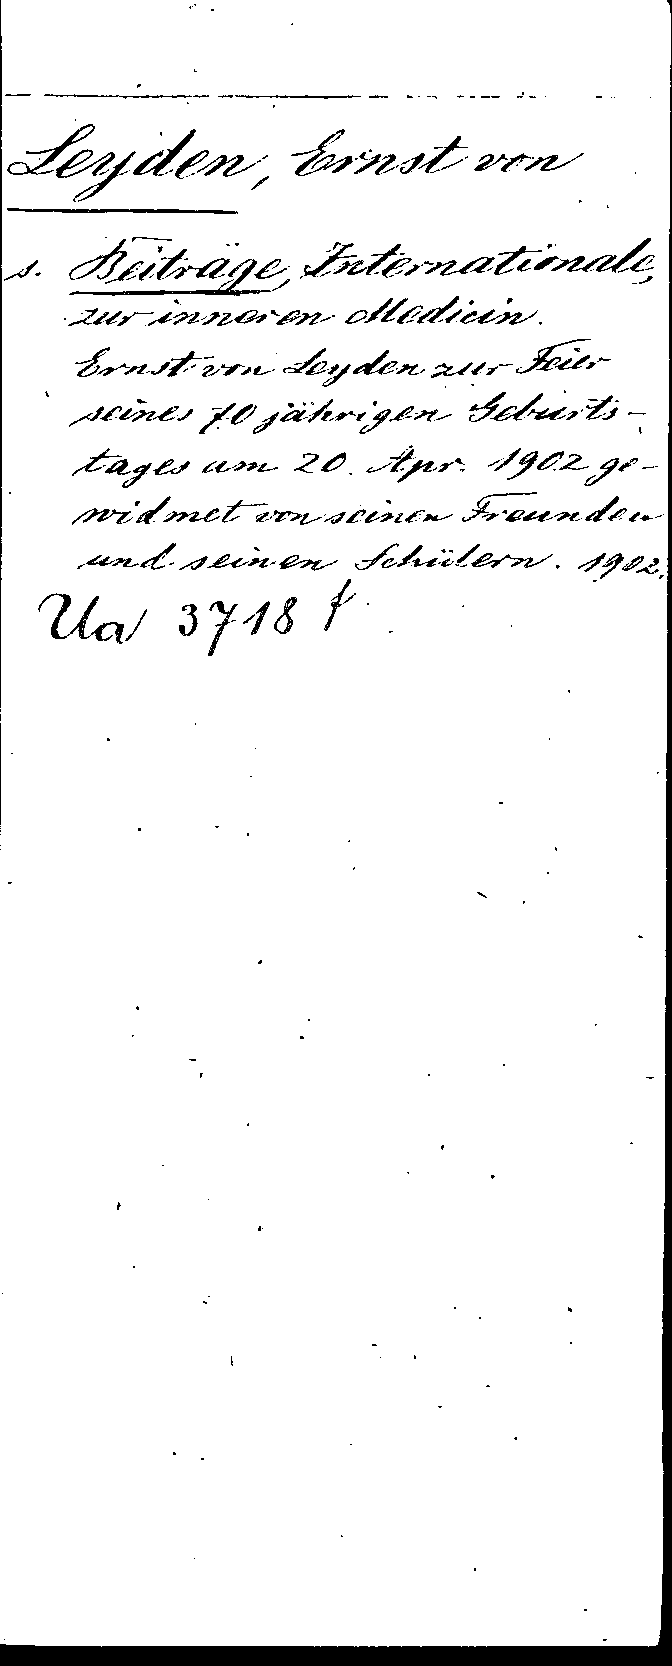 Leyden, Ernst von
s. Beiträge, Internationale,
zur inneren Medicin.
Ernst von Leyden zur Feier
seines 70 jährigen Geburts-
tages am 20. Apr. 1902 ge-
widmet von seinen Freunden
und seinen Schülern. 1902.
Ua 3718 f